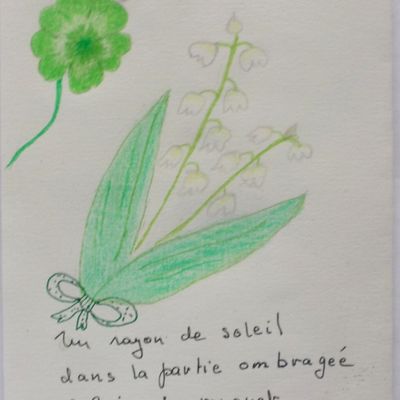 un rayon de soleil
dans la partie ombrageé